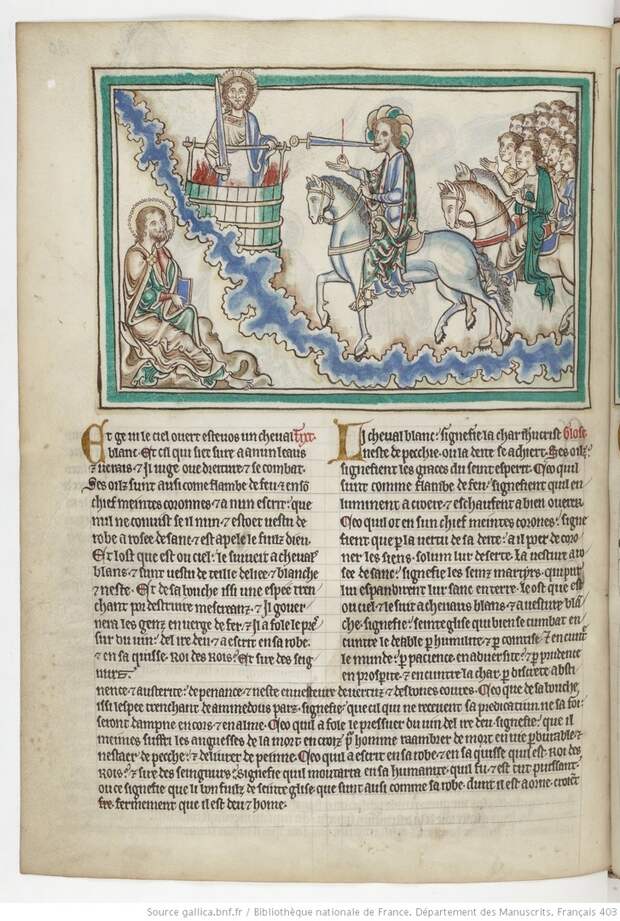 Et ge vi le ciel overt estevos un cheval tixt
blanc. Et cil qui sist sure a a nun leaus
⁊ verais. ⁊ il iuge ove dreiture ⁊ se combat.
Ses oilz sunt ausi come flambe de feu ⁊ en sō
chief meintes coronnes ⁊ a nun escrit que
nul ne conuist se il nun. ⁊ estoet vestu de
robe arosee de sanc ⁊ est apele le fiuz dieu.
Et lost que est ou ciel le siuveit a chevaus
blans ⁊ sunt vestu de teille delice ⁊ blanche
⁊ neste. Et de sa bouche issi une espee tren
chant por destruire mescreanz ⁊ il gover
nera les genz en verge de fer ⁊ il a fole le pres
sur du vin del ire deu ⁊ a escrit en sa robe.
⁊ en sa quisse. Roi des Rois. Et sire des seig
nurs.
Li cheval blanc signefie la char ihucrist Glose
neste de pecche ou la deite se achiert. Ses oilz
signefient les graces du seint esperit. Ceo quil
sunt come flambe de feu signefient quil en
luminent a croere ⁊ eschaufent a bien overer.
Ceo quil ot en sun chief meintes corones signe
fient que p la vertu de sa deite a il poer de coro
ner les siens solum lur deserte. La vesture aro
see de sanc signefie les seinz martyrs qui pur
lui espandirent lur sanc en terre. Le ost que est
ou ciel ⁊ le siut a chevaus blans ⁊ a vesture blā
che signefie seinte eglise qui bien se cumbat en
cuntre le deable p humilite ⁊ p comune ⁊ encunt
le munde p pacience en adversite ⁊ p prudence
en prosperite ⁊ encuntre la char p discrete absti
nence ⁊ austerite de penance ⁊ neste en vesteure de vertuz ⁊ des bones coures. Ceo que de sa bouche
issi lespee trenchant de ammedous parz signefie que cil qui ne recevent sa predicatiun ne sa foi
seront dampne en cors ⁊ en alme. Ceo quil a fole le pressuer du vin del ire deu signefie que il
meimes suffri les anguesses de la mort en croiz p homme raambrer de mort en vie pdurable ⁊
nestaer de pecche ⁊ deliverer de peinne. Ceo quil a escrit en sa robe ⁊ en sa quisse quil est Roi des
Rois ⁊ sire des seingnurs signefie quil moutarra en sa humanite quil fu ⁊ est tut puissant
ou ce signefie que li bon fiulz de seinte glise que sunt ausi come sa robe dunt il est aorne croient
fermement que il est deu ⁊ home.
Source gallica.bnf.fr / Bibliothèque nationale de France. Département des Manuscrits. Français 403